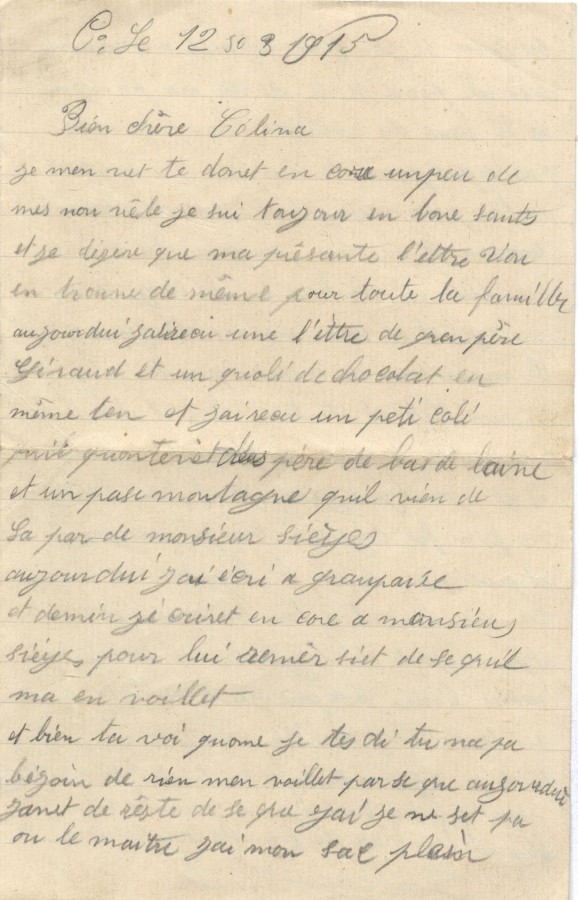 Ce 12 1915
Bien chère Célina
je men vet te donet en core unpeu de
mes nou vèle je sui toujour en bone santé
et je désere que ma présante l'ettre vou
en trouve de même pour toute la famille
aujourdui jaireçu une l'éttre de gran père
Géraud et un quoli de chocolat en
même ten et jaireçu un peti coli
père de bas de laine
et un pase montagne quil vien de
la par de monsieur sièyes
aujourdui j'ai écri a granparée
et demin jé criret en core a monsieur
sièyes pour lui de se quil
ma en voillet
et bien ta voi quome je tes di tu na pa
bézoin de rien men voillet parse que aujourdui
janet de rèste de se que j'ai je ne set pa
ou le maitre j'ai mon sac plain